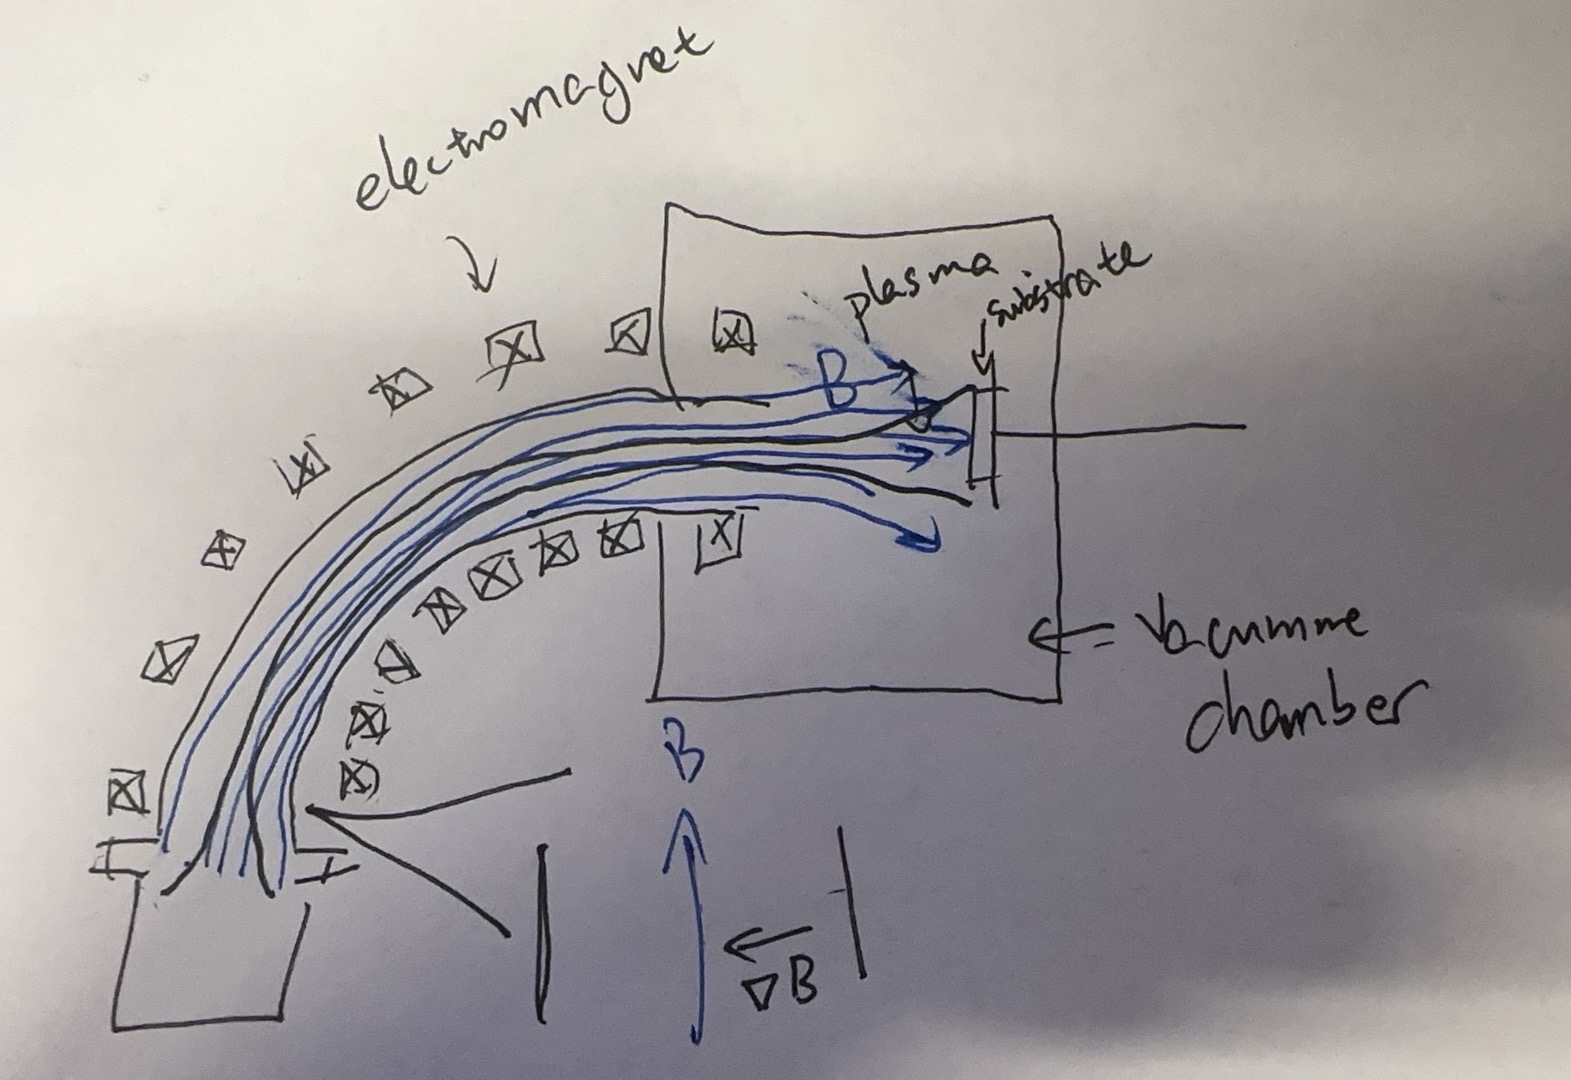 electromagnet
plasma
substrate
B
Vacumme
chamber
B
∇B